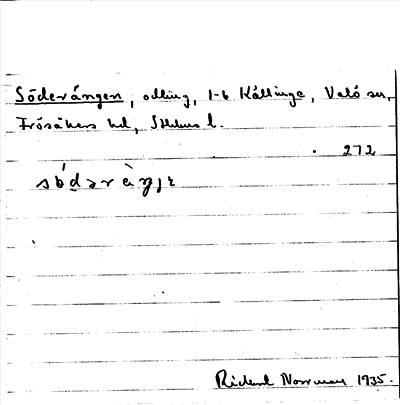 Söderängen, odling, 1-6 Källinge, Valö sn,
Frösåkers hd, Sthlms l.
272
sö́dəràŋɟɛ
Rickard Norrman 1935.